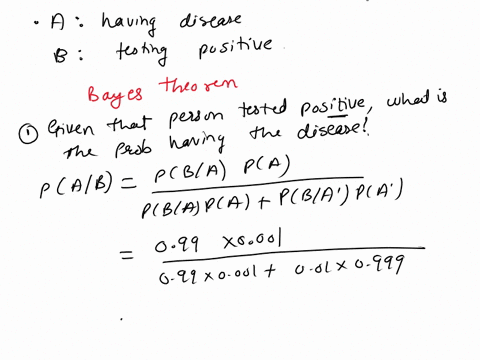 . A : having disease
B : testing positive
Bayes theorem
① Given that person tested positive, what is
the prob having the disease?
P(A/B) = P(B/A) P(A)
P(B/A)P(A) + P(B/A')P(A')
= 0.99 x0.001
0.99 x 0.001 + 0.01 x 0.999